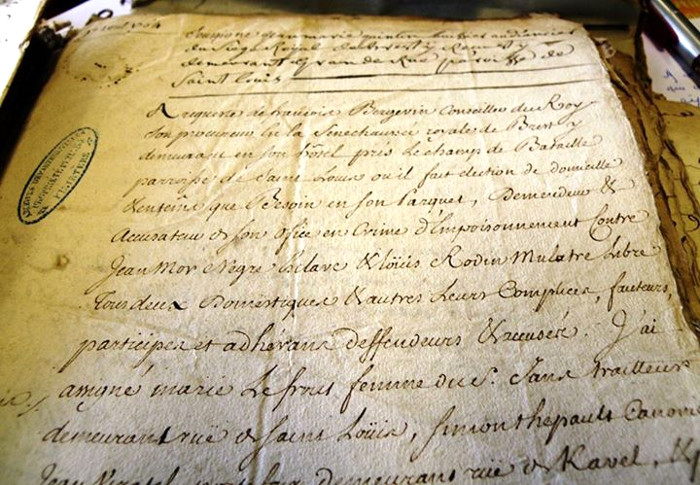 Soussigné Jean marie quintin huissier audiancier
du Siege Royal de Brest y Reçu et y
demeurant Grande Rue parroisse de
Saint Louis
A Requete de françois Bergevin Conseiller du Roy
Son procureur En la Senechaussée royale de Brest y
demeurant en son hôtel près le champ de Bataille
parroisse de Saint Louis ou il fait election de domicille
que Besoin en son Parquet, Demendeur &
Accusateur de son ofice en Crime d'Empoisonnement Contre
Jean Mor Negre Esclave & Loüis Rodin Mulatre Libre
Tous deux Domestiques & autres Leurs Complices, fauteurs,
participes et adhérans deffendeurs & accusés. J'ai
assigné marie Le frout femme du Sr. Sans trailleurs
demeurant ruë de Saint Loüis, Simon thepault Canonn
Jean demeurans ruë de Kavel, &